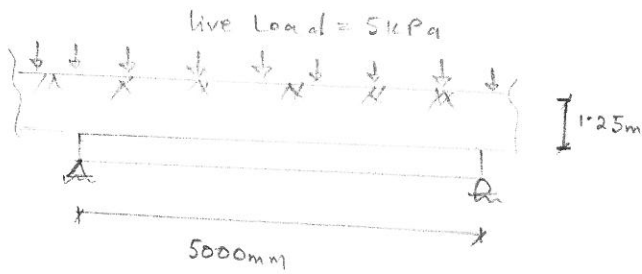 live Load = 5kPa
1.25m
5000mm